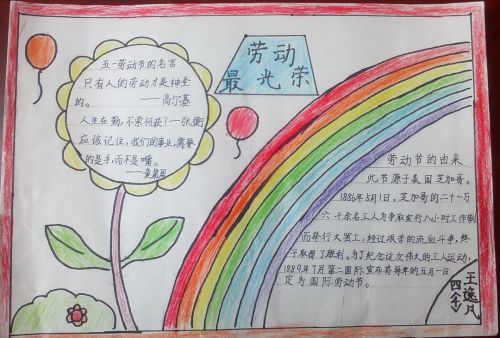 劳动
最光荣
五一劳动节的名言
只有人的劳动才是神圣
的。——高尔基
人生在勤,不索何获?一张衡
应该记住,我们的事业,需要
的是手,而不是嘴。
——童第周
劳动节的由来
此节源于美国芝加哥。
1886年5月1日,芝加哥的二十一万
六千余名工人为争取实行八小时工作制
而举行大罢工,经过艰苦的流血斗争,终
于取得了胜利。为了纪念这次伟大的工人运动,
1889年7月第二国际宣布将每年的五月一日
定为国际劳动节。
王逸凡